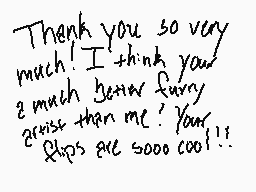 Thank you so very
much! I think your
a much better furry
artist than me! Your
flips are sooo cool!!